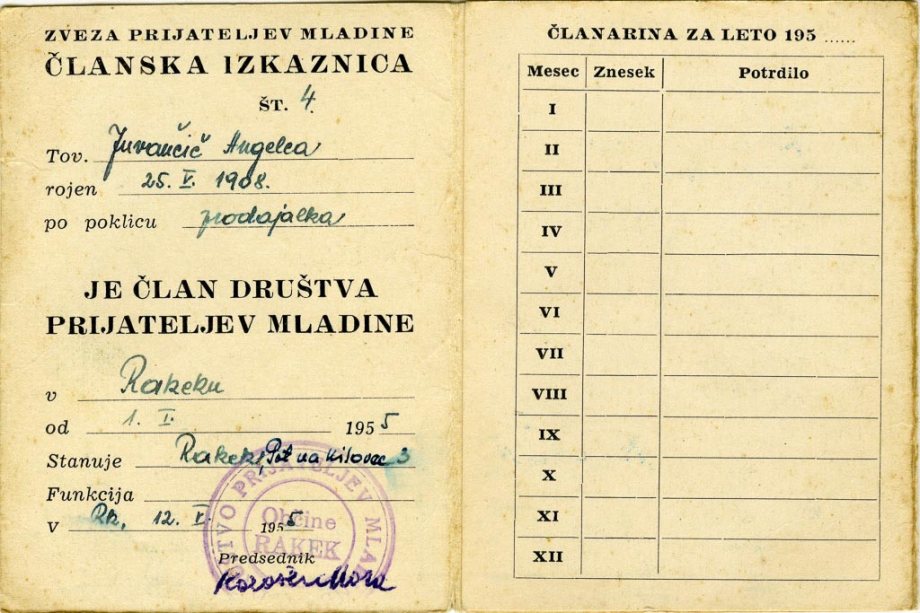 ZVEZA PRIJATELJEV MLADINE
ČLANSKA IZKAZNICA
ŠT. 4
Tov. Juvančič Angelca
rojen 25. V. 1908.
po poklicu prodajalka
JE ČLAN DRUŠTVA
PRIJATELJEV MLADINE
v Rakeku
od 1. I. 1955
Stanuje Rakek, Pot na Kilovec 3
Funkcija
V Rk, 12. V. 1955
Predsednik
DRUŠTVO PRIJATELJEV MLADINE
Občine
RAKEK
ČLANARINA ZA LETO 195 ......
Mesec Znesek Potrdilo
I
II
III
IV
V
VI
VII
VIII
IX
X
XI
XII